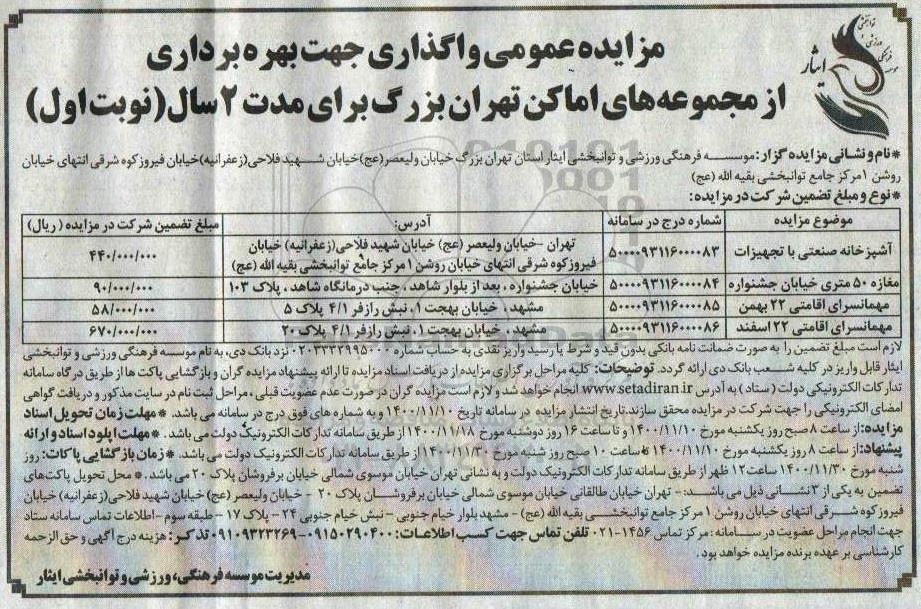 موسسه فرهنگی ورزشی توانبخشی
ایثار
مزایده عمومی واگذاری جهت بهره برداری
از مجموعه‌های اماکن تهران بزرگ برای مدت ۲ سال (نوبت اول)
*نام و نشانی مزایده گزار: موسسه فرهنگی ورزشی و توانبخشی ایثار استان تهران بزرگ خیابان ولیعصر(عج) خیابان شهید فلاحی(زعفرانیه)خیابان فیروزکوه شرقی انتهای خیابان
روشن ۱ مرکز جامع توانبخشی بقیه الله (عج)
*نوع و مبلغ تضمین شرکت در مزایده:
موضوع مزایده شماره درج در سامانه آدرس: مبلغ تضمین شرکت در مزایده ( ریال)
آشپزخانه صنعتی با تجهیزات ۵۰۰۰۰۹۳۱۱۶۰۰۰۰۸۳ تهران -خیابان ولیعصر (عج) خیابان شهید فلاحی (زعفرانیه) خیابان فیروزکوه شرقی انتهای خیابان روشن ۱ مرکز جامع توانبخشی بقیه الله (عج) ۴۴۰/۰۰۰/۰۰۰
مغازه ۵۰ متری خیابان جشنواره ۵۰۰۰۰۹۳۱۱۶۰۰۰۰۸۴ خیابان جشنواره ، بعد از بلوار شاهد ، جنب درمانگاه شاهد ، پلاک ۱۰۳ ۹۰/۰۰۰/۰۰۰
مهمانسرای اقامتی ۲۲ بهمن ۵۰۰۰۰۹۳۱۱۶۰۰۰۰۸۵ مشهد ، خیابان بهجت ۱، نبش رازفر ۴/۱ پلاک ۵ ۵۸/۰۰۰/۰۰۰
مهمانسرای اقامتی ۲۲ اسفند ۵۰۰۰۰۹۳۱۱۶۰۰۰۰۸۶ مشهد ، خیابان بهجت ۱، نبش رازفر ۴/۱ پلاک ۲۰ ۶۷۰/۰۰۰/۰۰۰
لازم است مبلغ تضمین را به صورت ضمانت نامه بانکی بدون قید و شرط یا رسید واریز نقدی به حساب شماره ۰۲۰۳۳۳۲۹۹۵۰۰۰ نزد بانک دی، به نام موسسه فرهنگی ورزشی و توانبخشی
ایثار قابل واریز در کلیه شعب بانک دی ارائه گردد. توضیحات: کلیه مراحل برگزاری مزایده از دریافت اسناد مزایده تا ارائه پیشنهاد مزایده گران و بازگشایی پاکت ها از طریق درگاه سامانه
تدارکات الکترونیکی دولت (ستاد) به آدرس www.setadiran.ir انجام خواهد شد و لازم است مزایده گران در صورت عدم عضویت قبلی ، مراحل ثبت نام در سایت مذکور و دریافت گواهی
امضای الکترونیکی را جهت شرکت در مزایده محقق سازند.تاریخ انتشار مزایده در سامانه تاریخ ۱۴۰۰/۱۱/۱۰ و به شماره های فوق درج در سامانه می باشد. *مهلت زمان تحویل اسناد
مزایده: از ساعت ۸ صبح روز یکشنبه مورخ ۱۴۰۰/۱۱/۱۰ و تا ساعت ۱۶ روز دوشنبه مورخ ۱۴۰۰/۱۱/۱۸ از طریق سامانه تدارکات الکترونیک دولت می باشد . *مهلت اپلود اسناد و ارائه
پیشنهاد: از ساعت ۸ روز یکشنبه مورخ ۱۴۰۰/۱۱/۱۰ تا ساعت ۱۰ صبح روز شنبه مورخ ۱۴۰۰/۱۱/۳۰ از طریق سامانه تدارکات الکترونیک دولت می باشد. *زمان بازگشایی پاکات: روز
شنبه مورخ ۱۴۰۰/۱۱/۳۰ ساعت ۱۲ ظهر از طریق سامانه تدارکات الکترونیک دولت و به نشانی تهران خیابان موسوی شمالی خیابان برفروشان پلاک ۲۰ می باشد . *محل تحویل پاکت‌های
تضمین به یکی از ۳ نشانی ذیل می باشند:- تهران خیابان طالقانی خیابان موسوی شمالی خیابان برفروشان پلاک ۲۰ - خیابان ولیعصر (عج) خیابان شهید فلاحی (زعفرانیه) خیابان
فیروزکوه شرقی انتهای خیابان روشن ۱ مرکز جامع توانبخشی بقیه الله (عج) - مشهد بلوار خیام جنوبی - نبش خیام جنوبی ۲۴ - پلاک ۱۷ - طبقه سوم -اطلاعات تماس سامانه ستاد
جهت انجام مراحل عضویت در سامانه : مرکز تماس ۱۴۵۶-۰۲۱ تلفن تماس جهت کسب اطلاعات: ۰۹۱۵۰۲۹۰۴۰۰-۰۹۱۰۹۳۲۳۲۶۹ تذکر: هزینه درج آگهی و حق الزحمه
کارشناسی بر عهده برنده مزایده خواهد بود.
مدیریت موسسه فرهنگی، ورزشی و توانبخشی ایثار